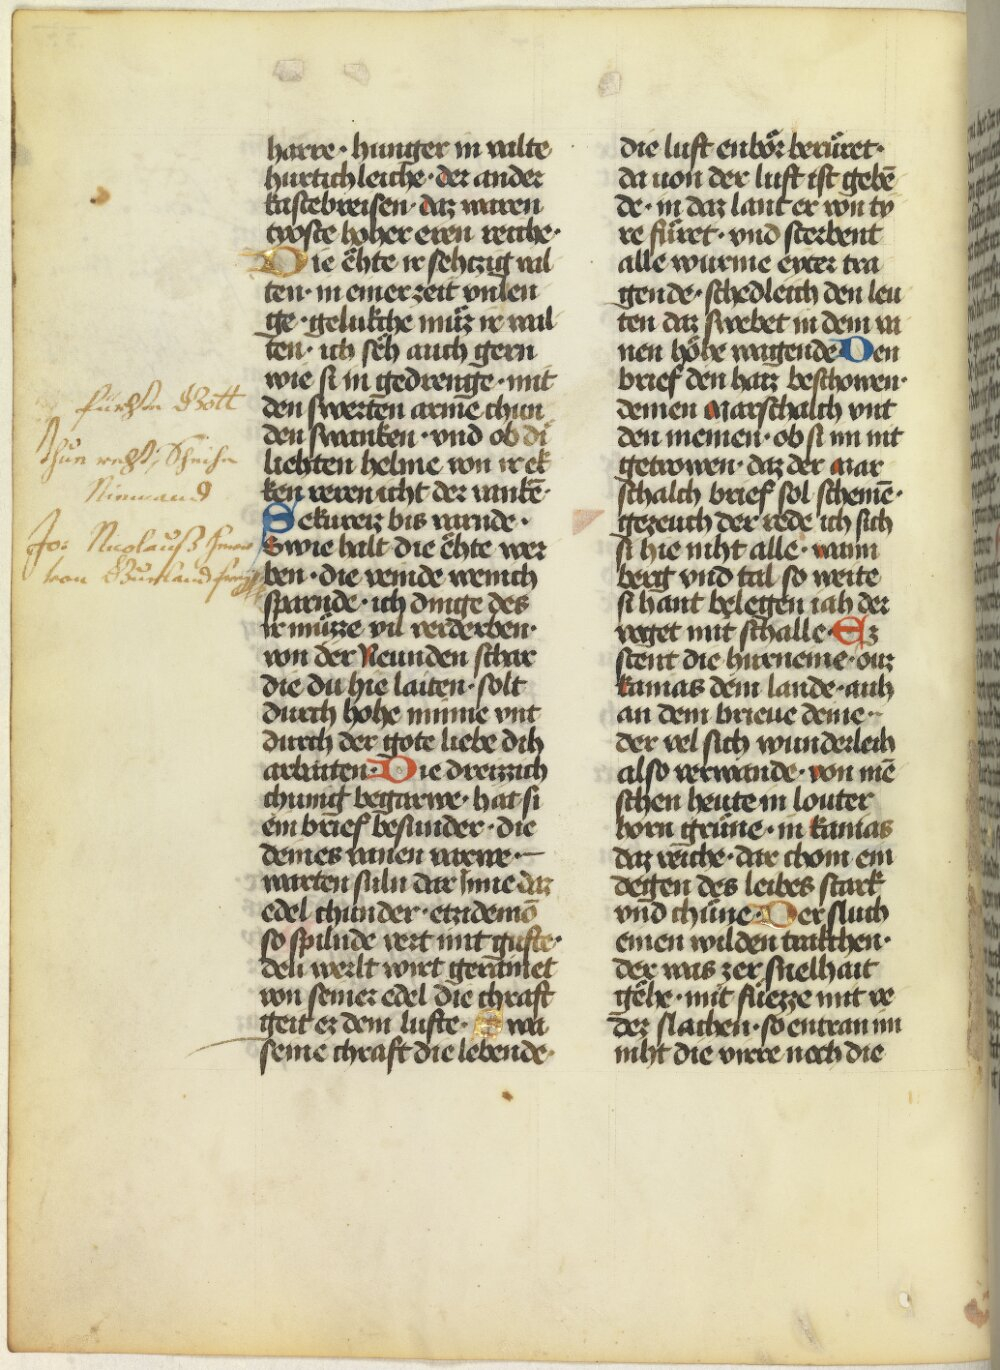 harre · hunger in valte
hurtichleiche · der ander
kastebreisen · daz waren
troste hoher eren reiche ·
Die ehte ir sehtzig val
ten · in einer zeit unlen
ge · gelukche müz ir wal
ten · ich sëh auch gern
wie si in gedrenge · mit
den swerten arme chun
den swanken · vnd ob di
liehten helme von ir ek
ken veren icht der vanke ·
Sekureiz bis varnde ·
Swie balt die ëhte wer
ben · die veinde wenich
sparnde · ich dinge des
ir müzze vil verderben ·
von der Neunden schar
die du hie laiten · solt
durch hohe minne vnt
durch der gote liebe dih
arbaiten · Die dreizzich
chunig begarwe · hat si
ein brief besunder · die
deines vanen varwe ·
warten suln dar Inne daz
edel chunder · etzidemō
so spilnde vert mit gufte ·
deu werlt wirt geraimet
von seiner edel die chraft
geit er dem lufte · Swa
seine chraft die lebende ·
fürchte Gott
thue recht, Scheihe
Niemand
Jo: Nicolauß
von
die luft enbör berüret ·
da uon der luft ist gebē
de · in daz lant er von ty
re füret · vnd sterbent
alle wurme eyter tra
gende · schedleich den leu
ten daz swebet in dem va
nen höhe wagende Den
brief den hatz beschowen ·
deinen Marschalch vnt
den meinen · ob si im nit
getrowen · daz der mar
schalch brief sol scheinē ·
gezeuch der rede ich sich
si hie niht alle · wann
berg vnd tal so weite
si hant belegen iah der
voget mit schalle · Ez
stent die hurneine · ouz
kanias dem lande · auh
an dem brieue deine ·
der vel sich wunderleih
also verwande · von mē
schen heute in louter
horn grüne · in kanias
daz reiche · dar chom ein
degen des leibes stark
vnd chüne · Der sluch
einen wilden trakchen ·
der was zer snelhait
gëhe · mit füezze mit ve
der slachen · so entran im
niht die virre noch die